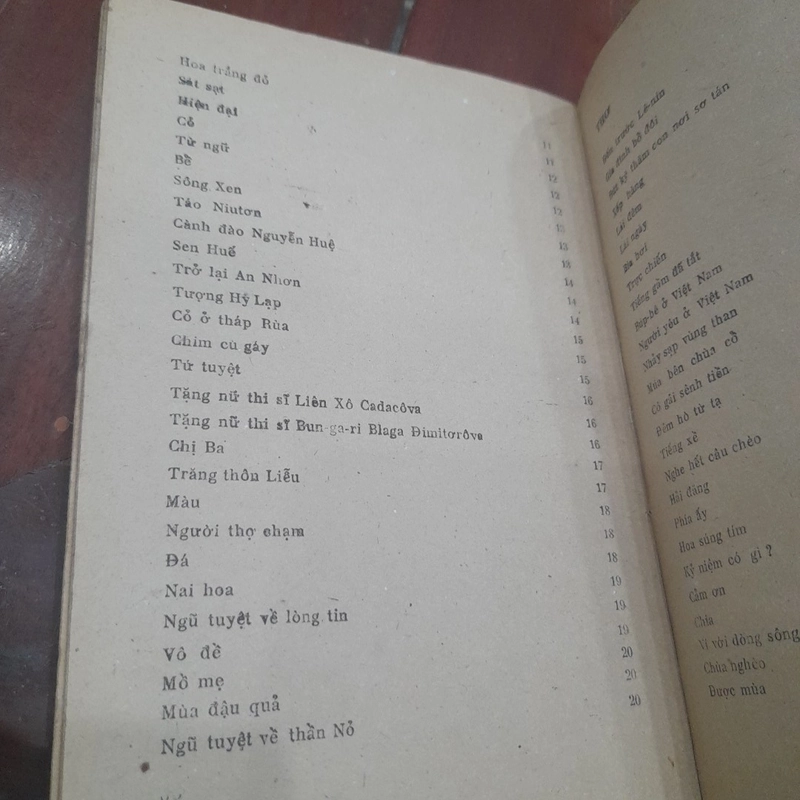 Hoa trắng đỏ
Sát sạt 11
Hiện đại 11
Cỏ 12
Từ ngữ 12
Bề 12
Sông Xen 13
Táo Niutơn 13
Cành đào Nguyễn Huệ 13
Sen Huế 14
Trở lại An Nhơn 14
Tượng Hy Lạp 14
Cỏ ở tháp Rùa 15
Chim cu gáy 15
Tứ tuyệt 15
Tặng nữ thi sĩ Liên Xô Cadacôva 16
Tặng nữ thi sĩ Bun-ga-ri Blaga Đimitơrôva 16
Chị Ba 16
Trăng thôn Liễu 17
Màu 17
Người thợ chạm 18
Đá 18
Nai hoa 18
Ngũ tuyệt về lòng tin 19
Vô đề 19
Mồ mẹ 19
Mùa đậu quả 20
Ngũ tuyệt về thần Nỏ 20
20
THƠ
trước Lê-nin
Gia đình bộ đội
ký thăm con nơi sơ tán
Xếp hàng
Lái đêm
Lái ngày
Bia hơi
Trực chiến
Tiếng gầm đã tắt
Búp-bê ở Việt Nam
Người yêu ở Việt Nam
Nhảy sạp vùng than
Múa bên chùa cổ
Cô gái sênh tiền
Đêm hò tứ tạ
Tiếng xề
Nghe hết câu chèo
Hải đăng
Phía ấy
Hoa súng tím
Kỷ niệm có gì ?
Cảm ơn
Chia
Ví với dòng sông
Chùa nghèo
Được mùa